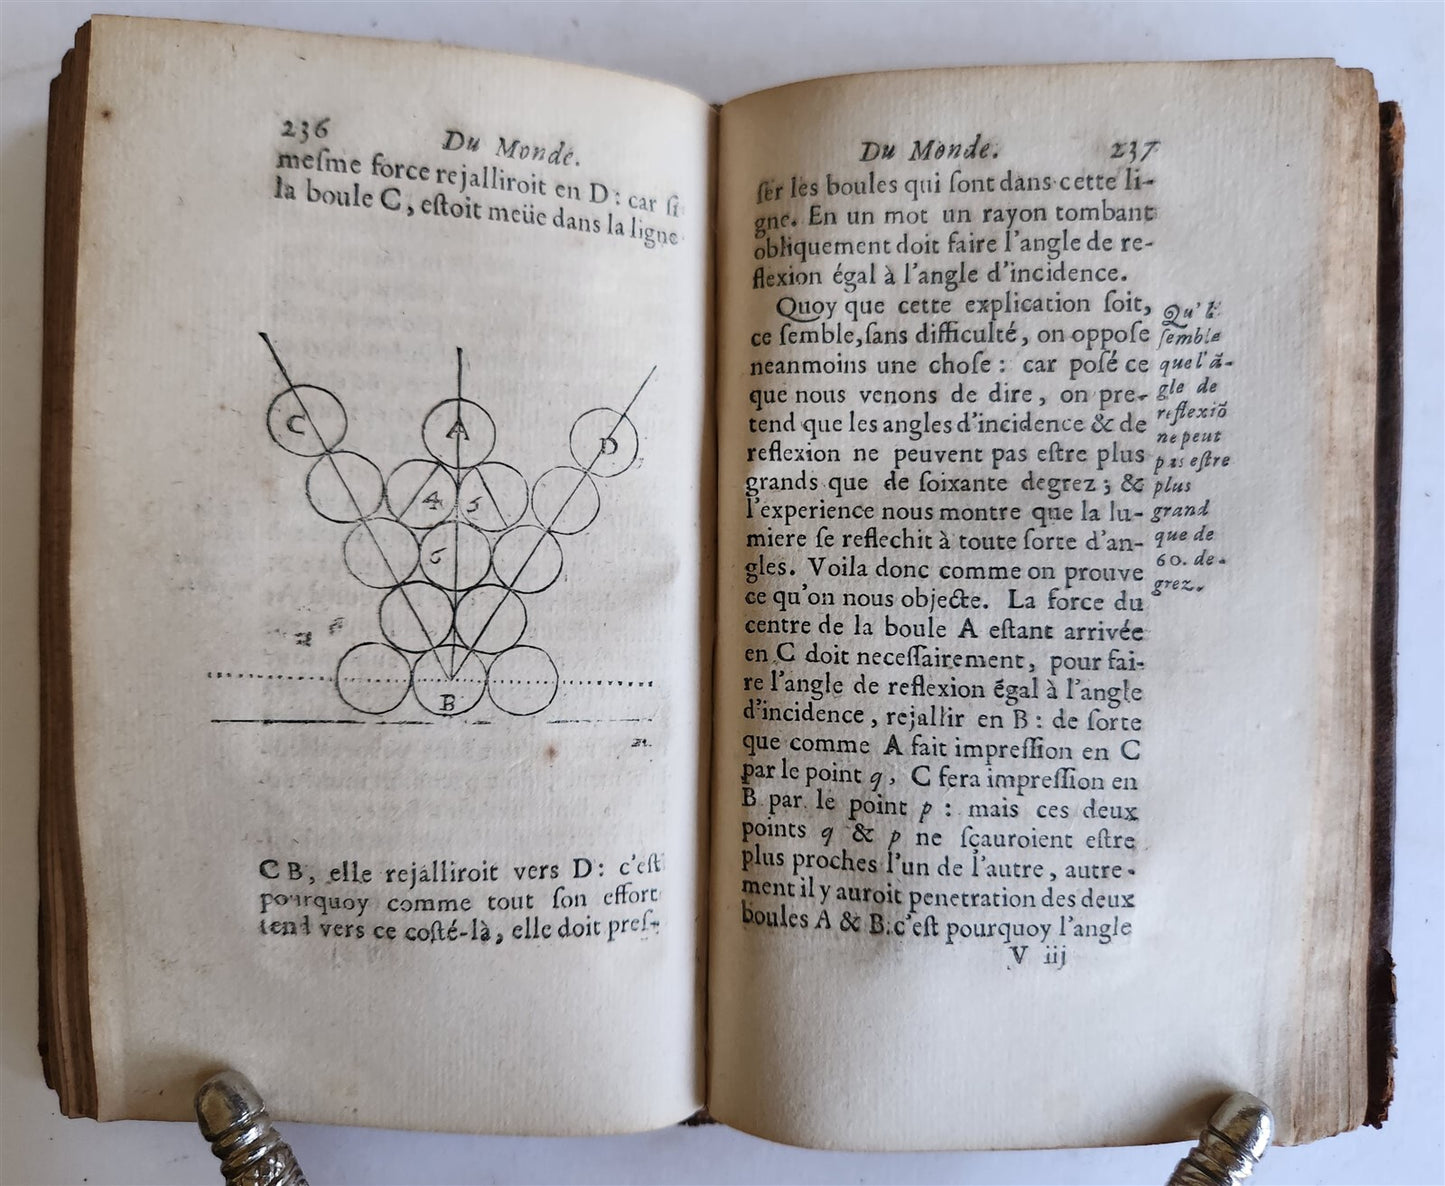 236
Du Monde.
meſme force rejalliroit en D : car ſi
la boule C, eſtoit meüe dans la ligne
C
A
D
4
5
6
B
C B, elle rejalliroit vers D : c'eſt
pourquoy comme tout ſon effort
tend vers ce coſté-là, elle doit preſ-
Du Monde.
237
ſer les boules qui ſont dans cette li-
gne. En un mot un rayon tombant
obliquement doit faire l'angle de re-
flexion égal à l'angle d'incidence.
Quoy que cette explication ſoit,
ce ſemble, ſans difficulté, on oppoſe
neanmoins une choſe : car poſé ce
que nous venons de dire, on pre-
tend que les angles d'incidence & de
reflexion ne peuvent pas eſtre plus
grands que de ſoixante degrez ; &
l'experience nous montre que la lu-
miere ſe reflechit à toute ſorte d'an-
gles. Voila donc comme on prouve
ce qu'on nous objecte. La force du
centre de la boule A eſtant arrivée
en C doit neceſſairement, pour fai-
re l'angle de reflexion égal à l'angle
d'incidence, rejallir en B : de ſorte
que comme A fait impreſſion en C
par le point q, C fera impreſſion en
B par le point p : mais ces deux
points q & p ne ſçauroient eſtre
plus proches l'un de l'autre, autre-
ment il y auroit penetration des deux
boules A & B : c'eſt pourquoy l'angle
V iij
Qu'il
ſemble
que l'ã-
gle de
reflexiõ
ne peut
pas eſtre
plus
grand
que de
60. de-
grez.